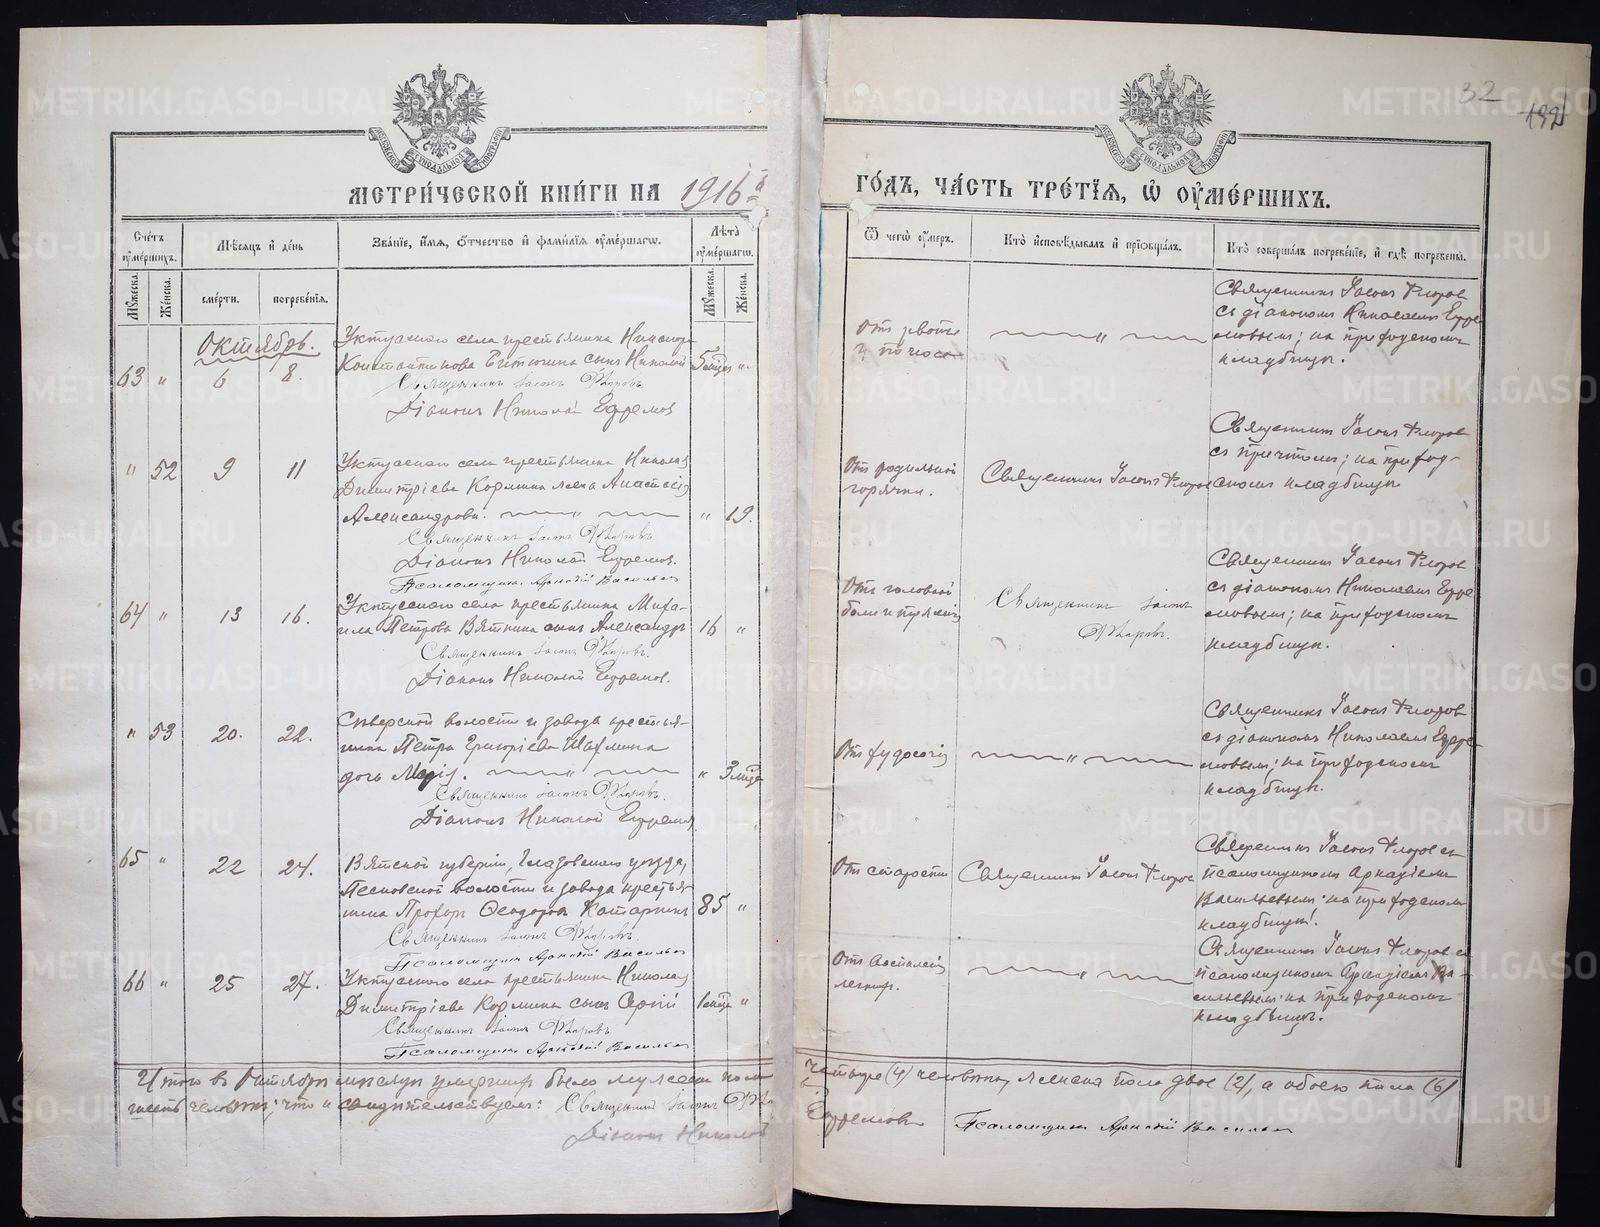 МЕТРИ́ЧЕСКОЙ КНИ́ГИ НА 1916 й
ГО́ДЪ, ЧА́СТЬ ТРЕ́ТЇѦ, Ѡ ОУ҆МЕ́РШИХЪ.
32
192
Сче́тъ оу҆ме́ршихъ.
Мѣ́сѧцъ и҆ де́нь
Зва́нїе, и҆́мѧ, ѻ҆́тчество и҆ фами́лїѧ оу҆ме́ршагѡ.
Лѣ́та оу҆ме́ршагѡ.
Ѿ чегѡ̀ оу҆́меръ.
Кто̀ и҆сповѣ́дывалъ и҆ прїѡбща́лъ.
Кто̀ соверша́лъ погребе́нїе, и҆ гдѣ̀ погребены̀.
Му́жеска.
Же́нска.
сме́рти.
погребе́нїѧ.
Му́жеска.
Же́нска.
Октябрь.
63 " 6 8.
Уктусскаго села крестьянина
Константинова сынъ Николай 5 "
Священникъ Іасонъ Флоровъ
Діаконъ Николай Ефремовъ
Отъ рвоты
и поноса
Священникъ Іасонъ Флоровъ
съ діакономъ Николаемъ Ефре-
мовымъ; на приходскомъ
кладбищѣ.
" 52 9 11
Уктусскаго села крестьянина Николая
Димитріева Кормина жена Анастасія
Александрова. " 19.
Священникъ Іасонъ Флоровъ
Діаконъ Николай Ефремовъ.
Псаломщикъ Аркадій Васильевъ
Отъ родильной
горячки.
Священникъ Іасонъ Флоровъ
Священникъ Іасонъ Флоровъ
съ причтомъ; на приход-
скомъ кладбищѣ
64 " 13 16.
Уктусскаго села крестьянина Миха-
ила Петрова Вяткина сынъ Александръ 16 "
Священникъ Іасонъ Флоровъ.
Діаконъ Николай Ефремовъ.
Отъ головной
боли и
Священникъ Іасонъ
Флоровъ.
Священникъ Іасонъ Флоровъ
съ діакономъ Николаемъ Ефре
мовымъ; на приходскомъ
кладбищѣ.
" 53 20. 22.
Сысертской волости и завода крестья-
нина Петра Григоріева
дочь Марія. " 3 мѣсяца
Священникъ Іасонъ Флоровъ.
Діаконъ Николай Ефремовъ
Отъ худосочія
Священникъ Іасонъ Флоровъ
съ діакономъ Николаемъ Ефре-
мовымъ; на приходскомъ
кладбищѣ.
65 " 22 24.
Вятской губерніи, Глазовскаго уѣзда,
Песковской волости и завода крестья-
нинъ Прохоръ Ѳеодоровъ 85 "
Священникъ Іасонъ Флоровъ.
Псаломщикъ Аркадій Васильевъ
Отъ старости
Священникъ Іасонъ Флоровъ
Священникъ Іасонъ Флоровъ съ
псаломщикомъ Аркадіемъ
Васильевымъ на приходскомъ
кладбищѣ.
66 " 25 27.
Уктусскаго села крестьянина Николая
Димитріева Кормина сынъ Сергій "
Священникъ Іасонъ Флоровъ
Псаломщикъ Аркадій Васильевъ
Отъ воспаленія
легкихъ.
Священникъ Іасонъ Флоровъ съ
псаломщикомъ Аркадіемъ Ва-
сильевымъ на приходскомъ
кладбищѣ.
Итого въ Октябрѣ мѣсяцѣ умершихъ было мужеска пола четыре (4) человѣка, женска пола двое (2), а обоего пола (6)
шесть человѣкъ; что и свидѣтельствуемъ: Священникъ Іасонъ
Діаконъ Николай Ефремовъ Псаломщикъ Аркадій Васильевъ
METRIKI.GASO-URAL.RU